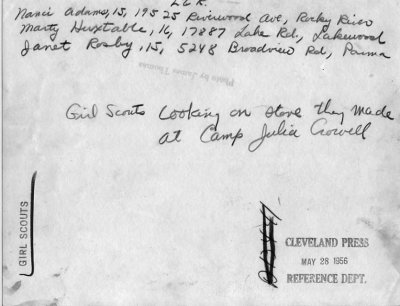 L to R.
Nanci Adams, 15, 19525 Riverwood Ave, Rocky River
Marty Huxtable, 16, 17887 Lake Rd., Lakewood
Janet Rosby, 15, 5248 Broadview Rd, Parma
Photo by James Thomas
Girl Scouts looking on stove they made
at Camp Julia Crowell
GIRL SCOUTS
CLEVELAND PRESS
MAY 28 1956
REFERENCE DEPT.